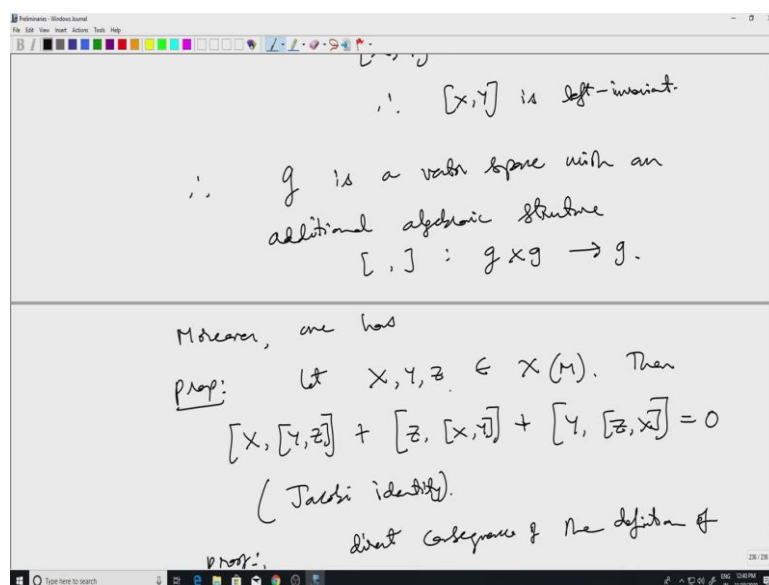 Preliminaries - Windows Journal
File Edit View Insert Actions Tools Help
∴ [X,Y] is left-invariant.
∴ g is a vector space with an
additional algebraic structure
[ , ] : g × g → g.
Moreover, one has
prop: Let X, Y, Z ∈ X(M). Then
[X, [Y,Z]] + [Z, [X,Y]] + [Y, [Z,X]] = 0
(Jacobi identity).
proof: direct consequence of the definition of
236 / 236
Type here to search
ENG 12:40 PM